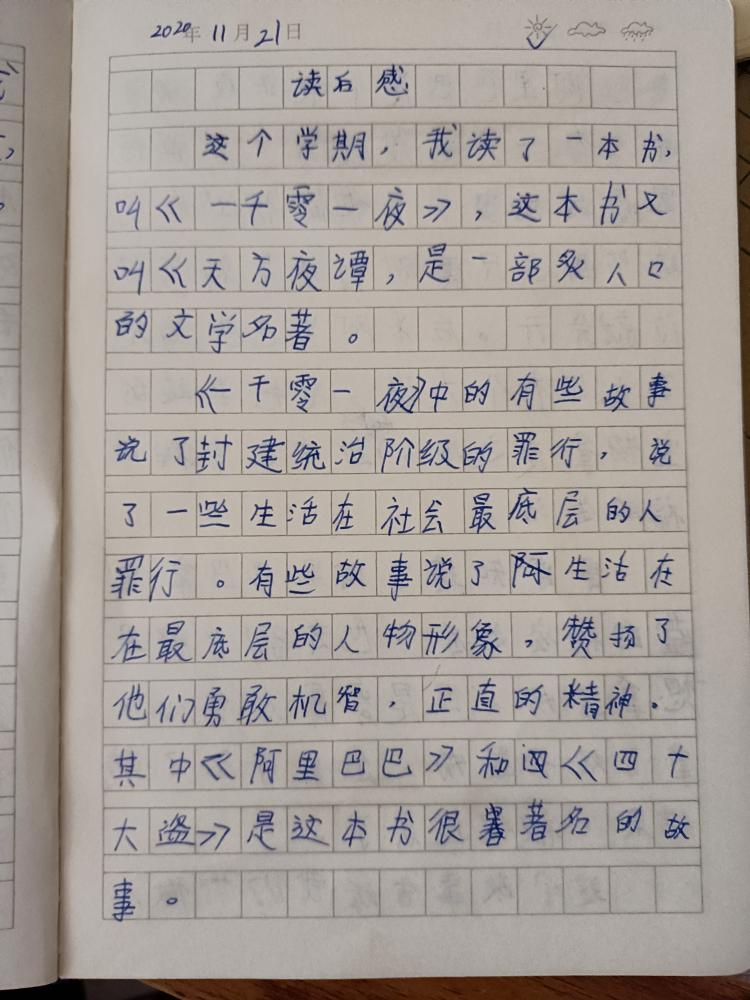 2020年11月21日
读后感
这个学期，我读了一本书，
叫《一千零一夜》，这本书又
叫《天方夜谭，是一部炙人口
的文学名著。
《一千零一夜》中的有些故事
说了封建统治阶级的罪行，说
了一些生活在社会最底层的人
罪行。有些故事说了阿生活在
在最底层的人物形象，赞扬了
他们勇敢机智，正直的精神。
其中《阿里巴巴》和四《四十
大盗》是这本书很著名的故
事。